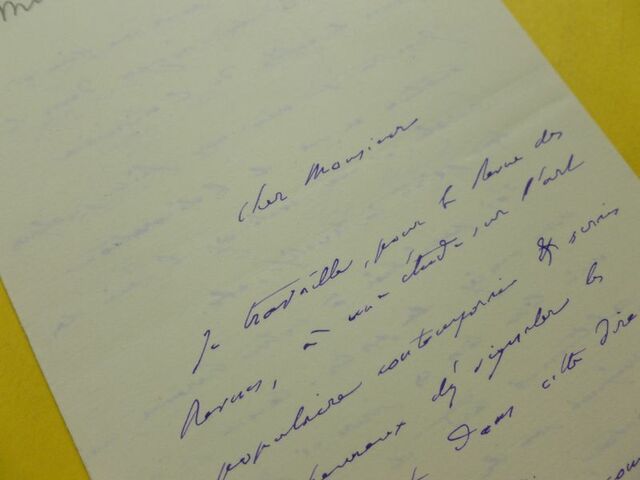 Cher Monsieur
Je travaille, pour la Revue des
Revues, à une étude sur l'art
populaire contemporain & serais
heureux d'y signaler les
dans cette dire